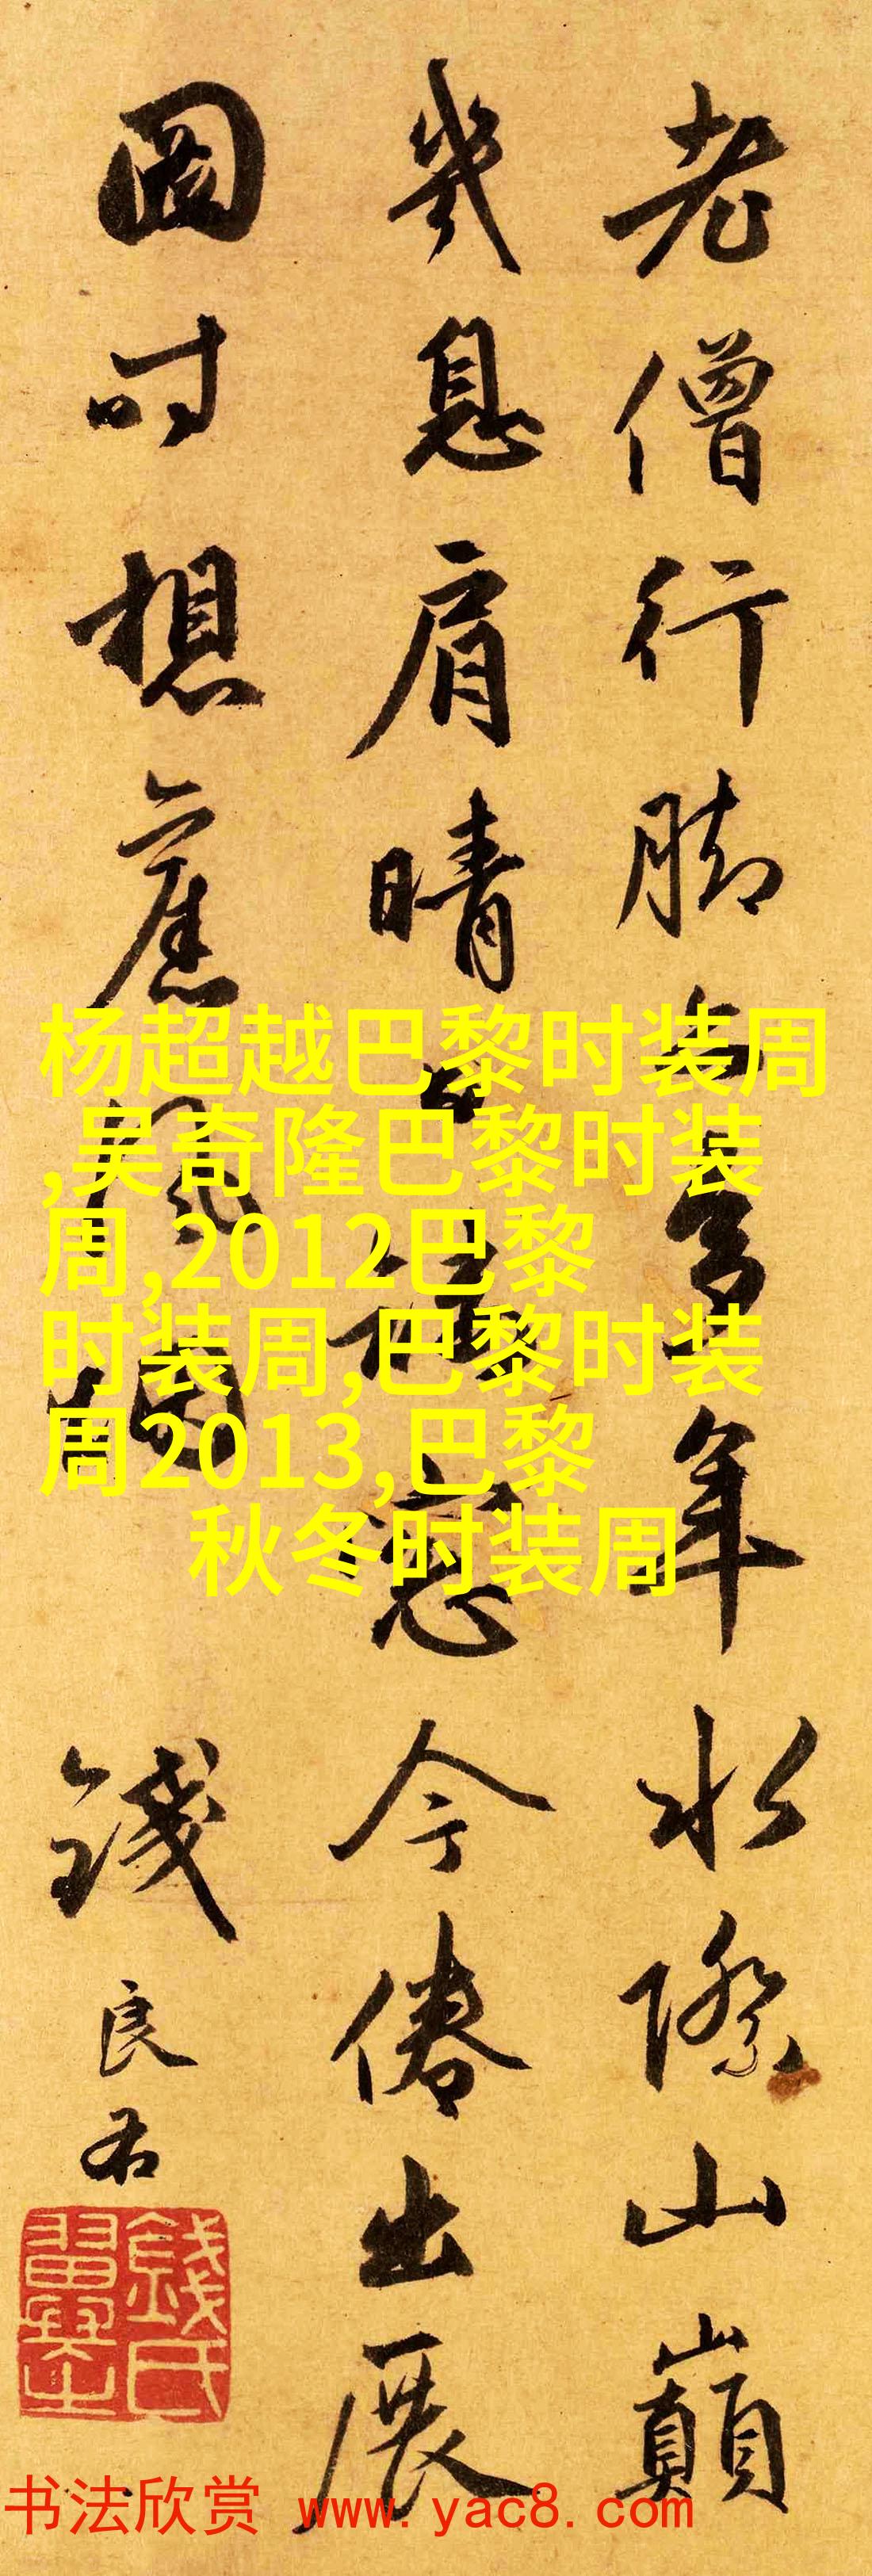 老僧行脚多年水際山巔
幾息肩晴戀今倦出展
圖時想舊風烟 錢良右
錢氏翼之
杨超越巴黎时装周
,吴奇隆巴黎时装
周,2012巴黎
时装周,巴黎时装
周2013,巴黎
秋冬时装周
书法欣赏 www.yac8.com